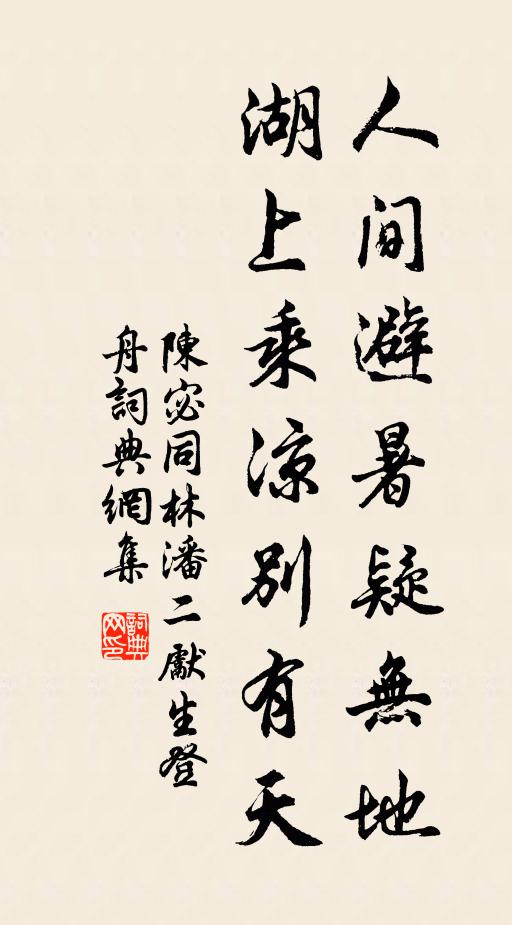 人間避暑疑無地
湖上乘涼別有天
陳宓同林潘二獻生登
舟詞典網集
詞典
网印